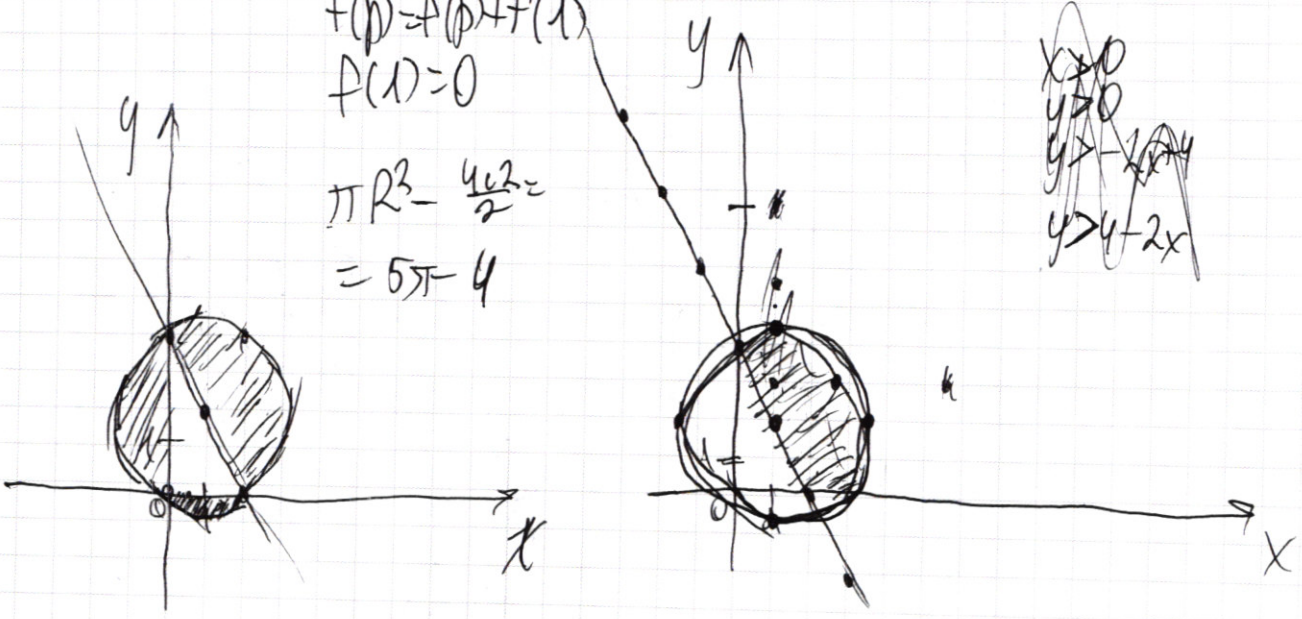 f(p)=f(p)+f(1)
f(1)=0
πR² - 4·2/2 =
= 5π - 4
y
x
0
y
x
0
x>0
y>0
y>4-2x